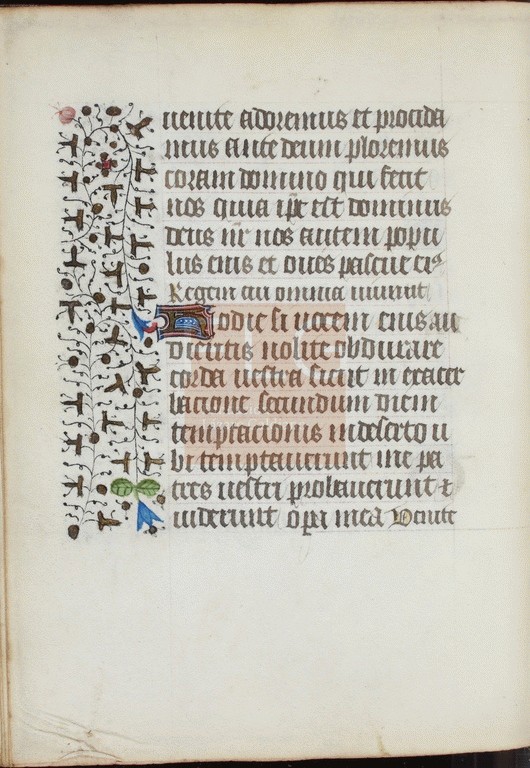 uenite adoremus et procida
mus ante deum ploremus
coram domino qui fecit
nos quia ip̄e est dominus
deus nr̄ nos autem popu
lus eius et oues pascue eiꝰ
Regem cui omnia uiuunt
Hodie si uocem eius au
dieritis nolite obdurare
corda uestra sicut in exacer
bacione secundum diem
temptacionis in deserto u
bi temptauerunt me pa
tres uestri probauerunt ⁊
uiderunt op̄a mea Uenite